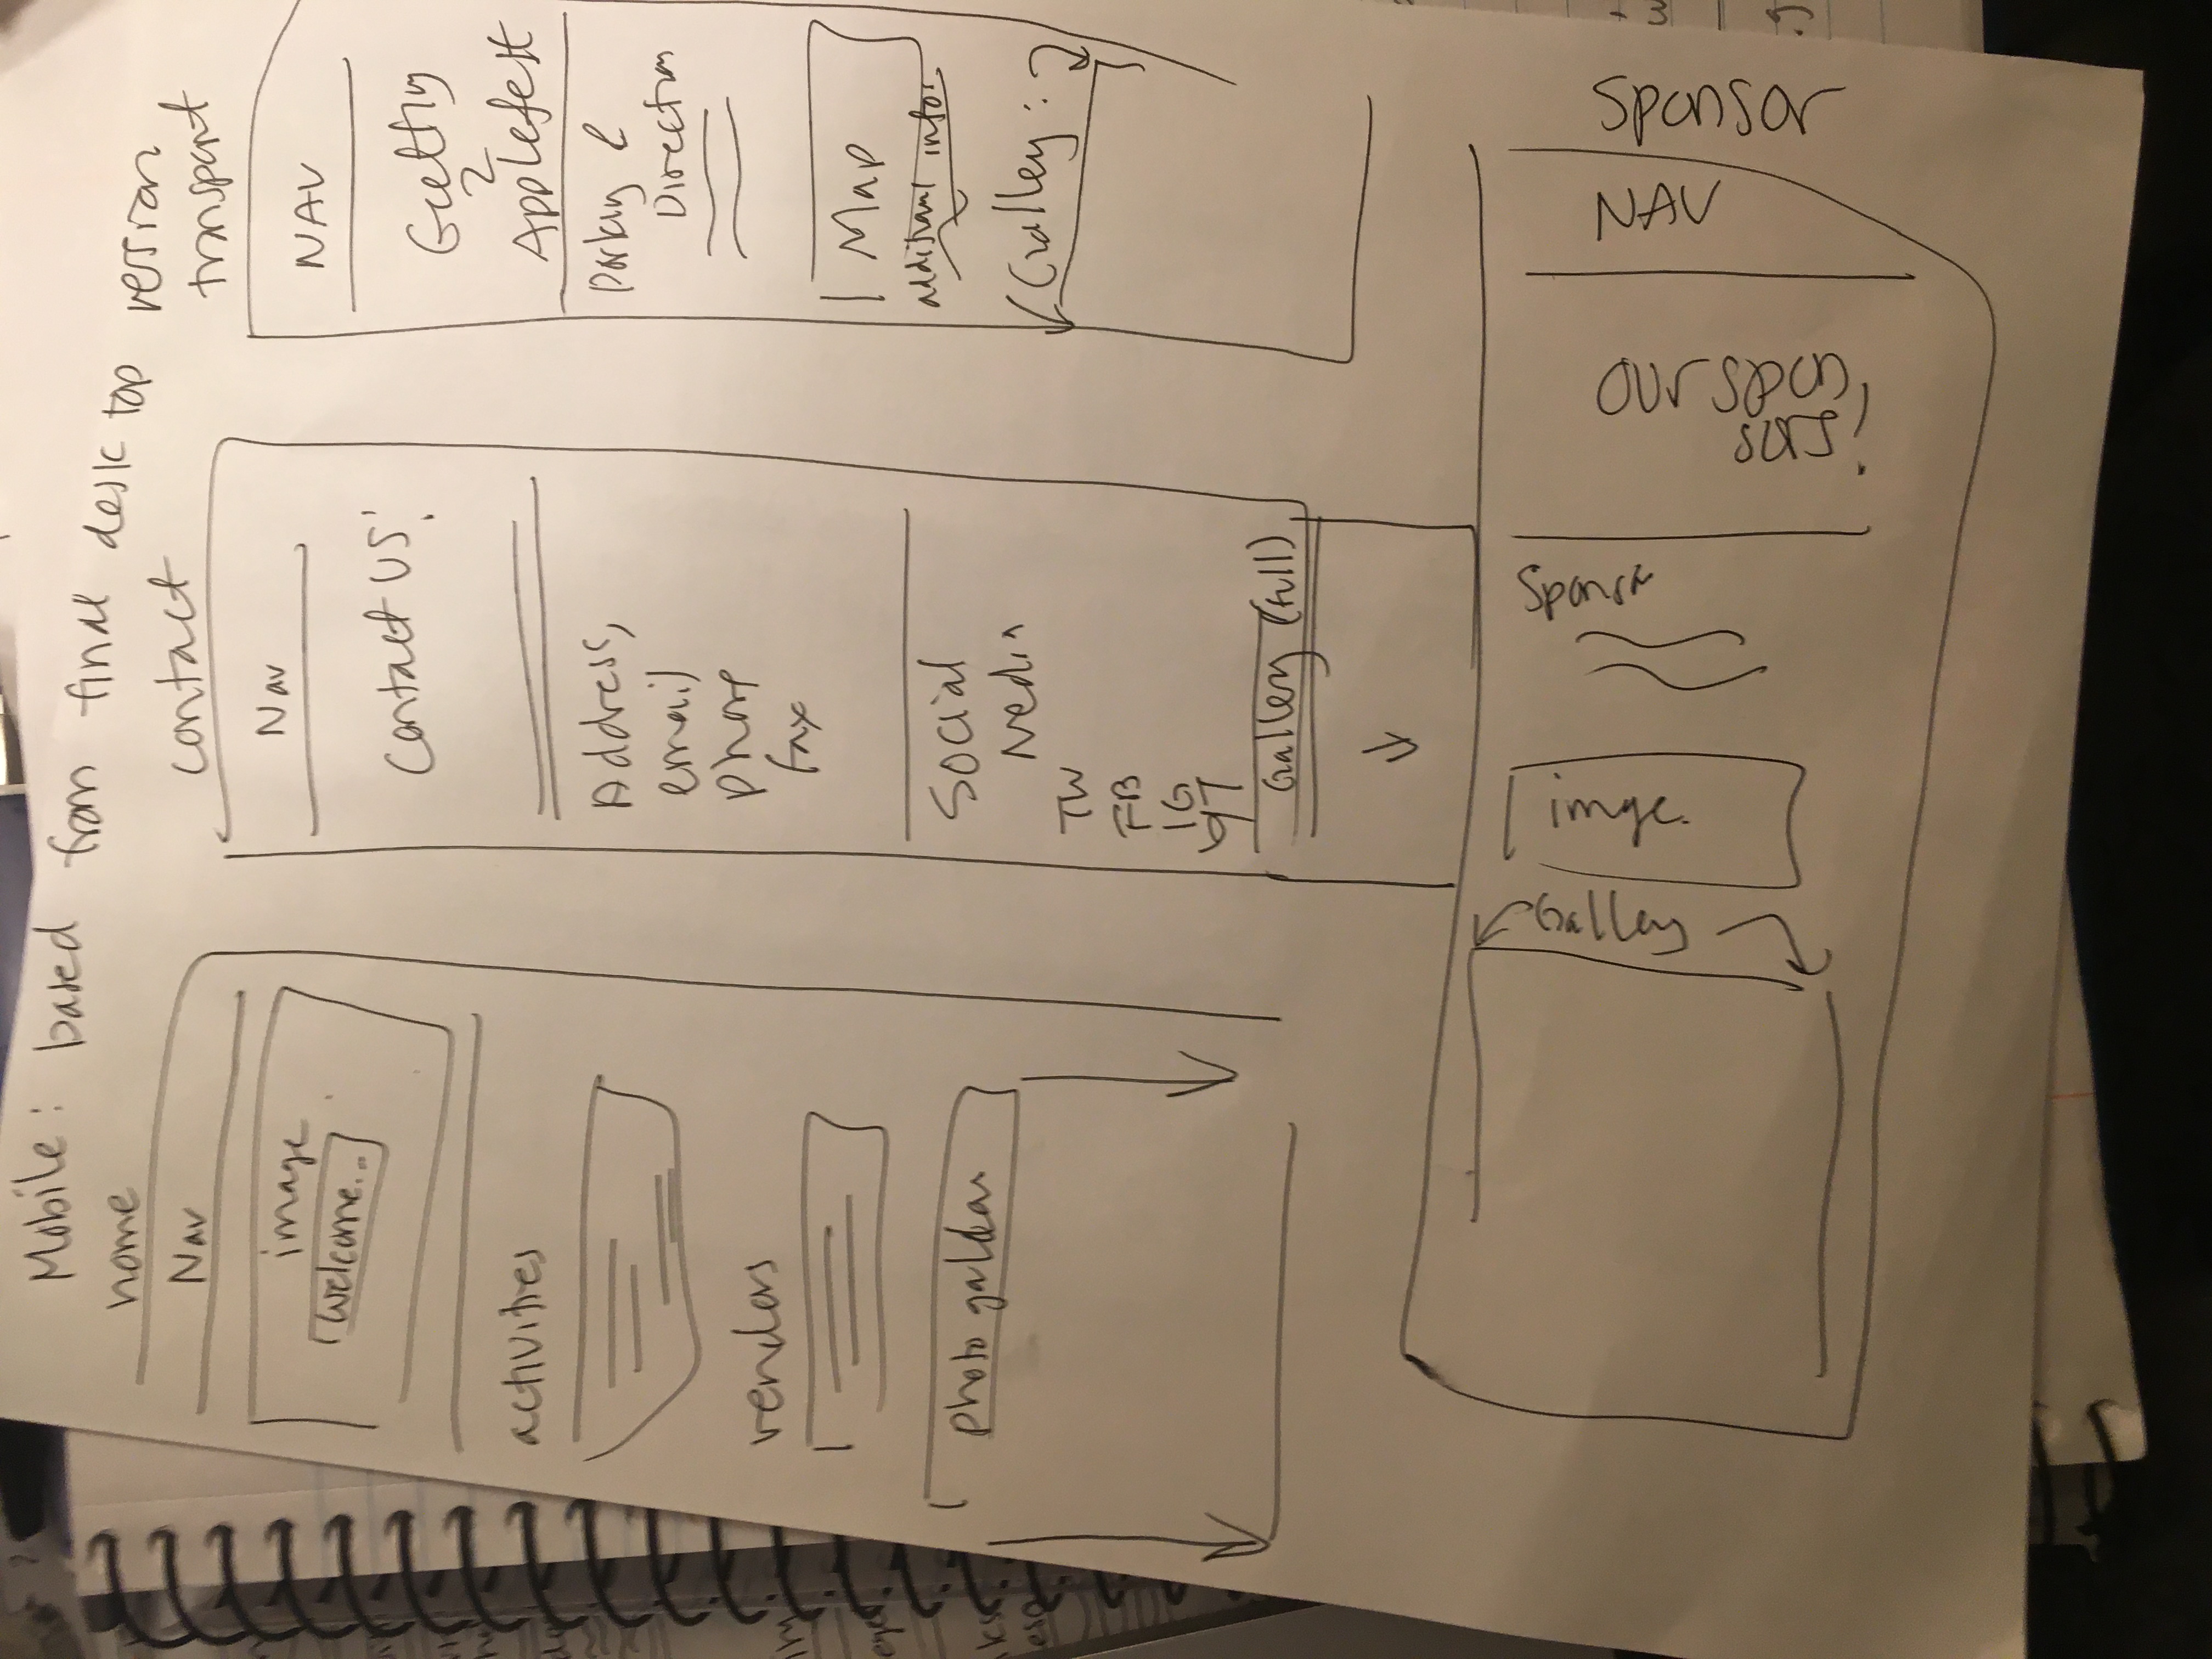 Mobile: based from final desktop version
home
Nav
image
Welcome...
activities
vendors
photo
contact
Nav
Contact US!
Address,
email
phone
fax
Social
Media
TW
FB
IG
YT
Gallery (full)
transport
NAV
Getting
2
Applefest
Parking &
Direction
Map
additional infor
Gallery:
Sponsor
NAV
our spon
sors!
Sponsor
image
Gallery